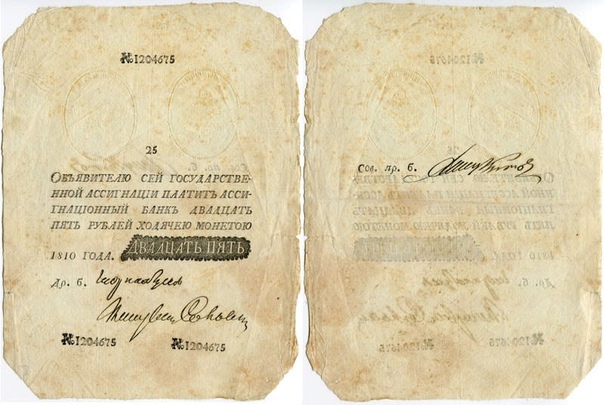 №1204675
25
ОБЪЯВИТЕЛЮ СЕЙ ГОСУДАРСТВЕ-
ННОЙ АССИГНАЦІИ ПЛАТИТЪ АССИ-
ГНАЦІОННЫЙ БАНКЪ ДВАДЦАТЬ
ПЯТЬ РУБЛЕЙ ХОДЯЧЕЮ МОНЕТОЮ
1810 ГОДА. ДВАДЦАТЬ ПЯТЬ
Др. б.
№1204675
№1204675
Сов. пр. б.